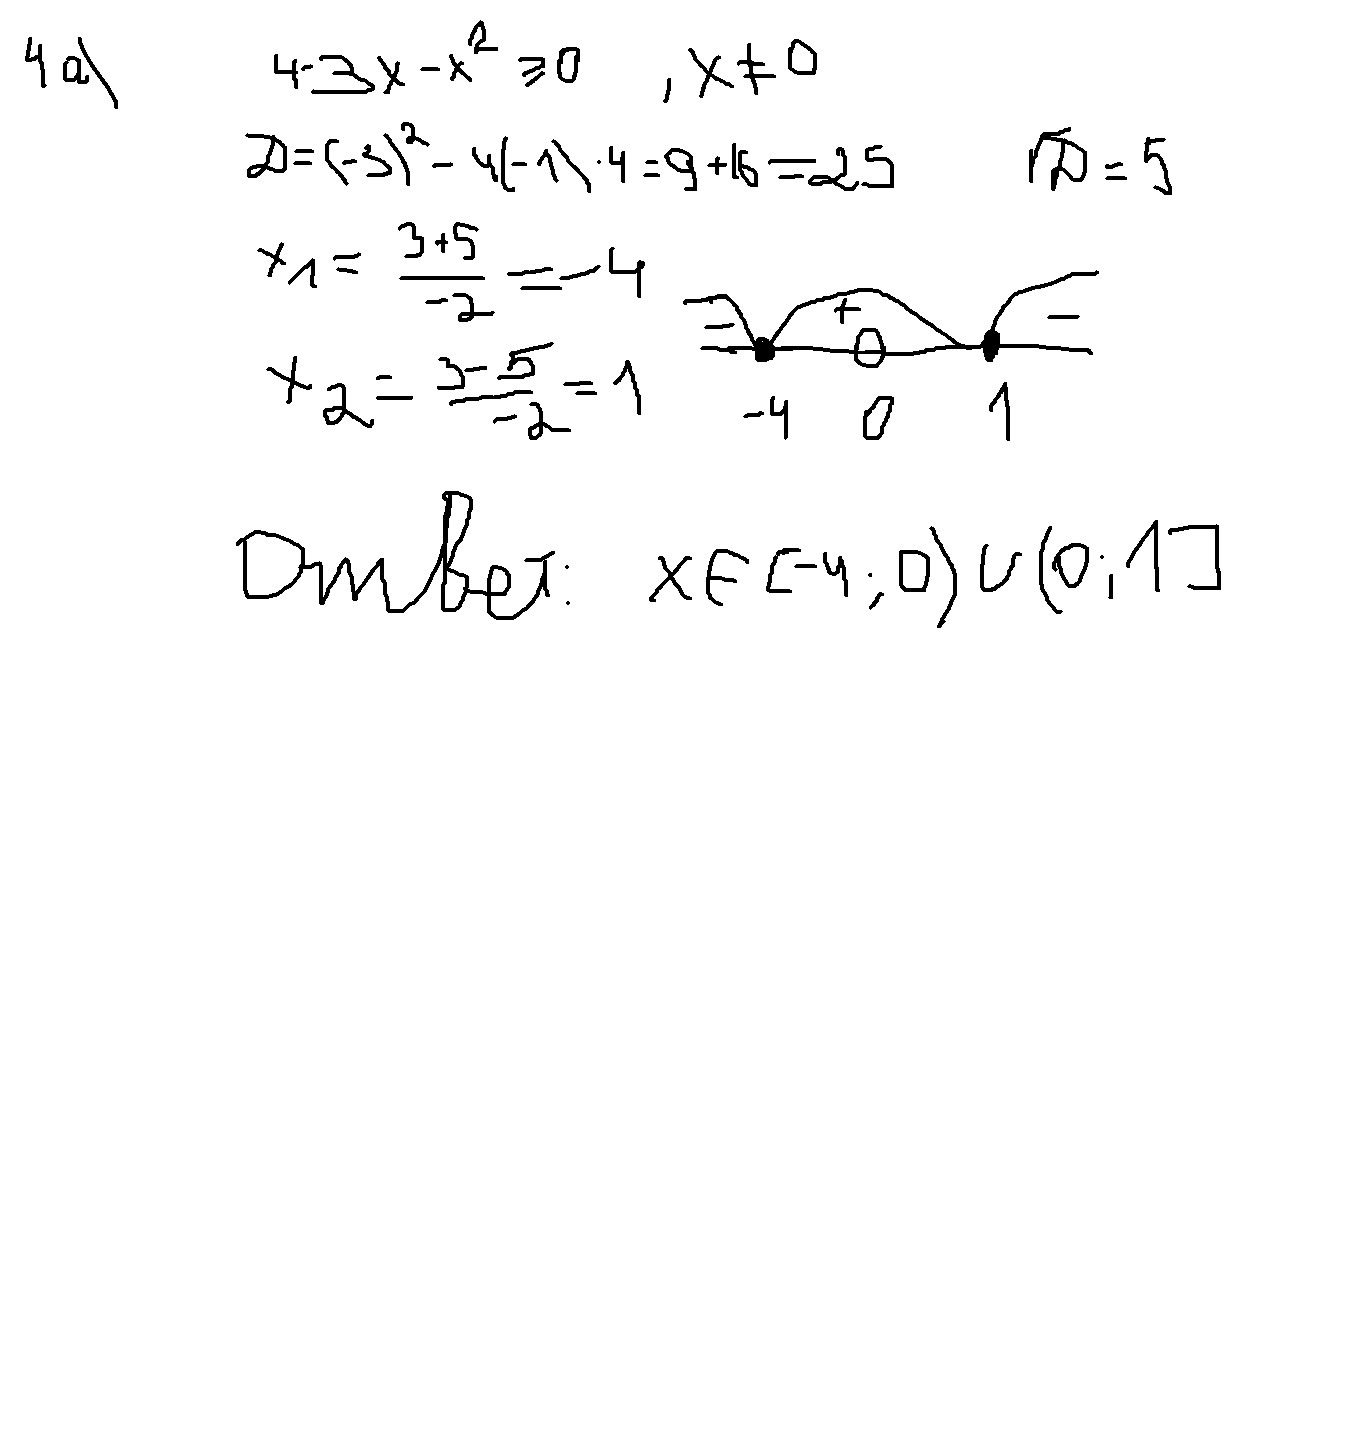 4а) 4-3x-x² ⩾0 , x≠0
D=(-3)²-4(-1)·4=9+16=25 √D=5
x1= (3+5)/(-2) =-4
- + -
x2= (3-5)/(-2) =1
-4 0 1
Ответ: x∈[-4;0)∪(0;1]